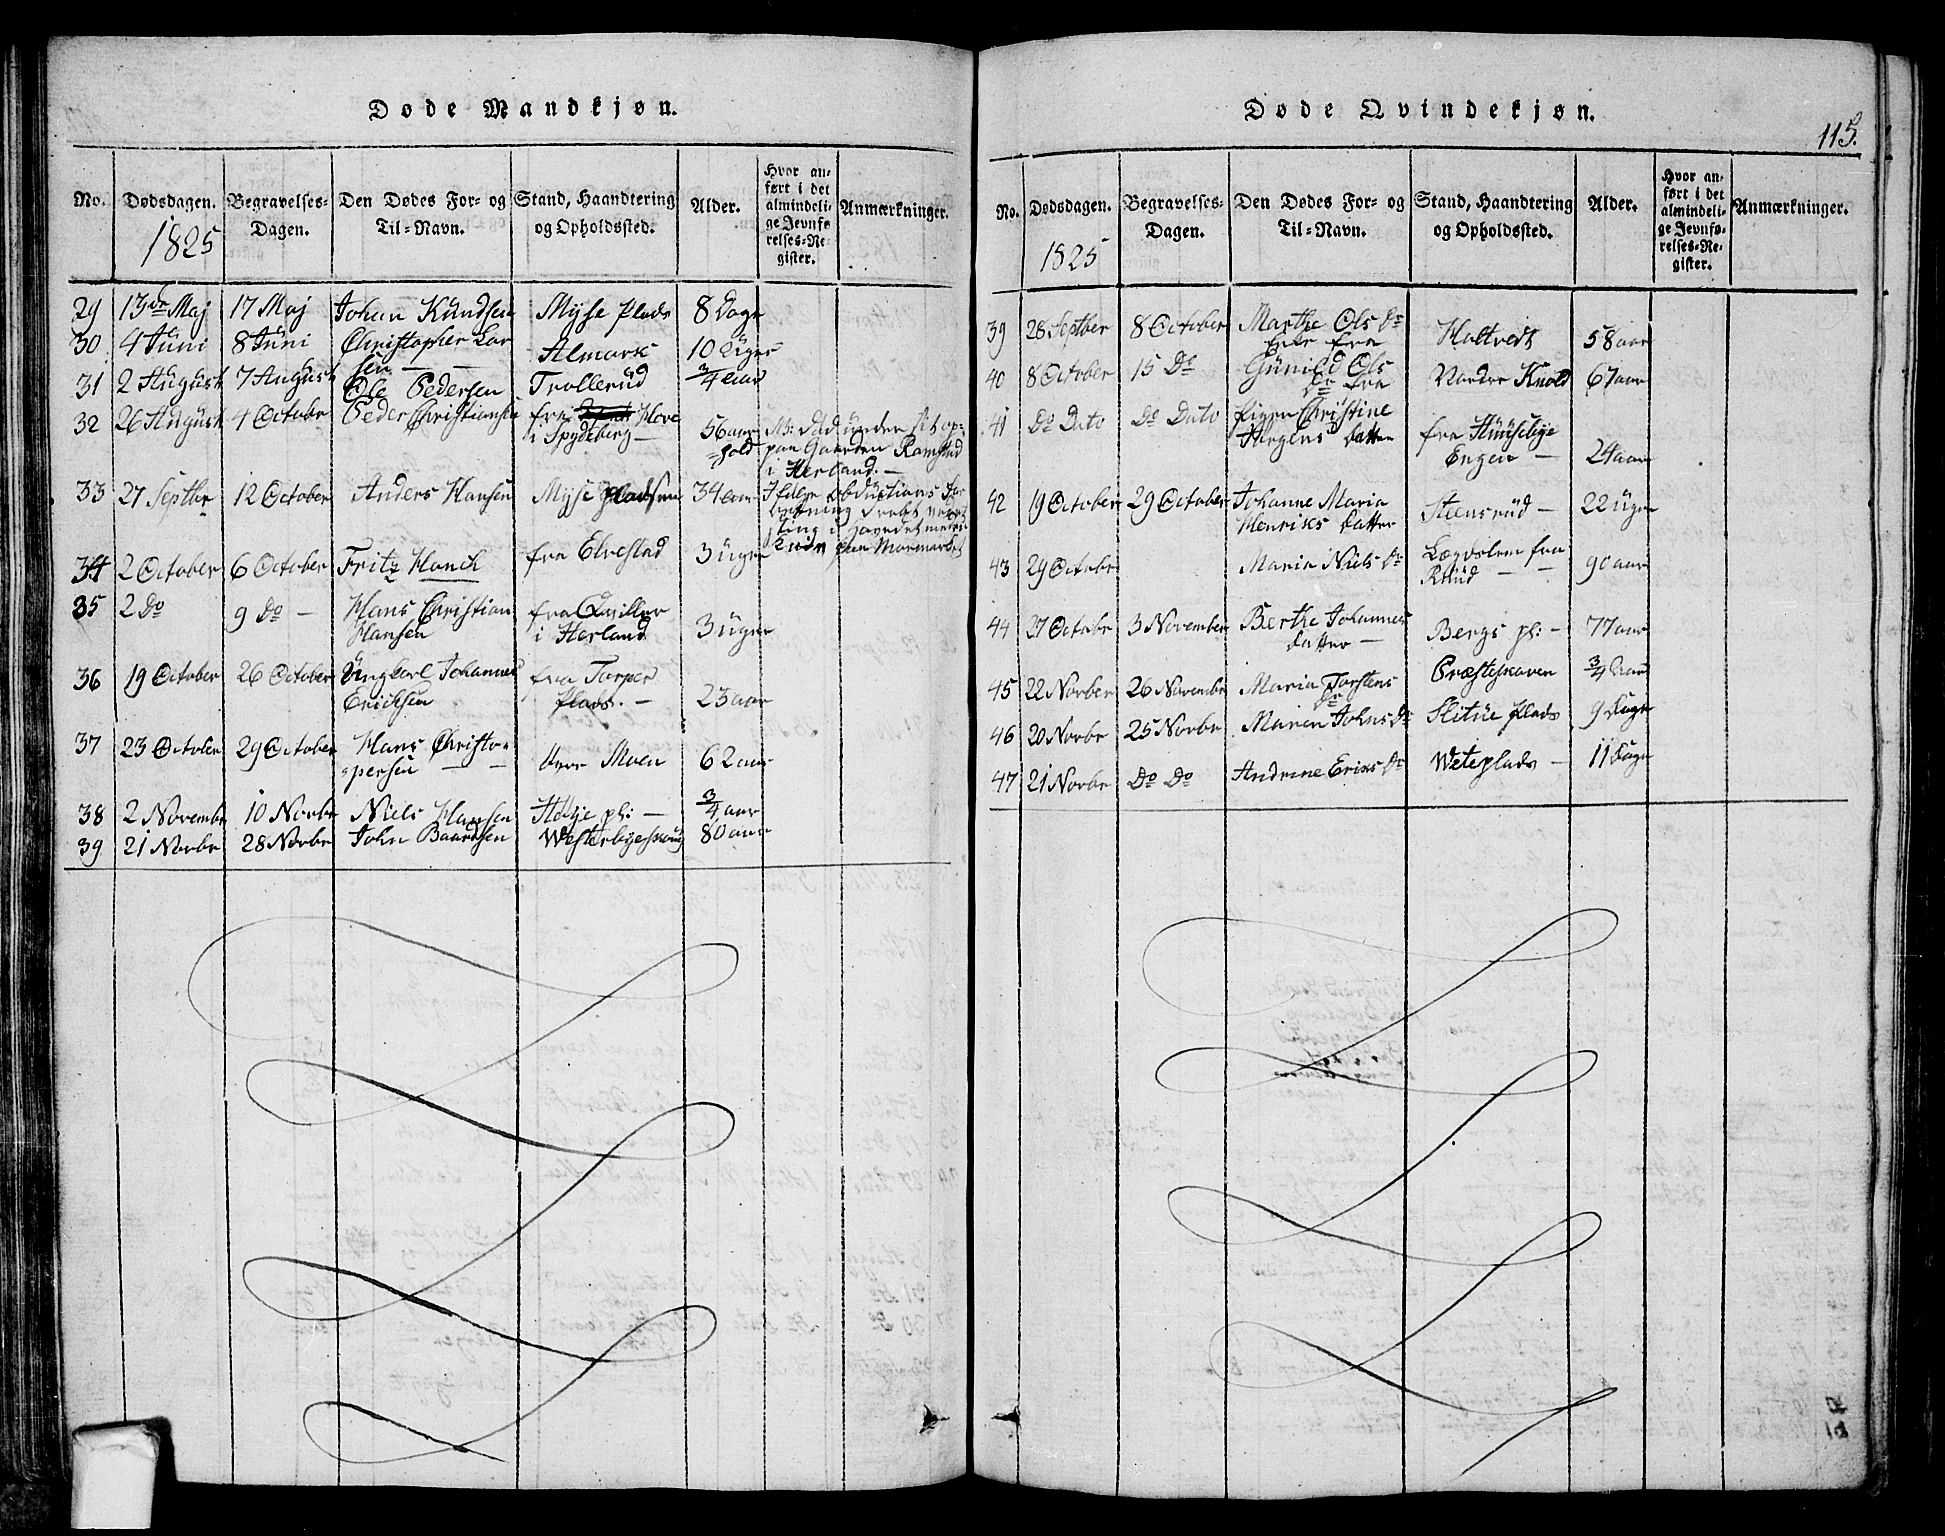 Døde Mandkjøn.
No. Dødsdagen. Begravelses-Dagen. Den Dødes For- og Til-Navn. Stand, Haandtering og Opholdssted. Alder. Hvor anført i det almindelige Jevnførelses-Register. Anmærkninger.
1825
29 13de Maj 17 Maj Johan Knudsen Mýse Plads 8 Dage
30 4 Juni 8 Juni Christopher Larsen Almark 10 Uger
31 2 August 7 August Ole Pedersen Trollerud 3/4 aar
32 26 August 4 October Peder Christiansen fra Hove
i Spydeberg 56 aar NB: død under sit op-
-hold paa Gaarden Ramstad
i Herland.
33 27 Septbr 12 October Anders Hansen Mýse pladsen 34 aar
34 2 October 6 October Fritz Hanch fra Elvestad 3 Uger
35 2 Do 9 Do Hans Christian
Hansen fra Qviller
i Herland 3 Uger
36 19 October 26 October Johannes
Erichsen fra Torper
Plads. 23 aar
37 23 October 29 October Hans Christo-
persen Øvre Moen 62 aar
38 2 Novembr 10 Novbr Niels Hansen pl: 3/4 aar
39 21 Novbr 28 Novbr John Baardsen 80 aar
Døde Qvindekjøn.
115.
No. Dødsdagen. Begravelses-Dagen. Den Dødes For- og Til-Navn. Stand, Haandtering og Opholdssted. Alder. Hvor anført i det almindelige Jevnførelses-Register. Anmærkninger.
1825
39 28 Septber 8 October Marthe Ols Dr
Enke fra Holtvedt 58 aar
40 8 October 15 Do Gunild Ols
Dr fra Nordre Knold 67 aar
41 Do Dato Do Dato Pigen Christine
Jørgens Datter fra
Engen 24 aar
42 19 October 29 October Johanne Maria
Henriks Datter Steensrud 22 Uger
43 29 Octobr Maria Niels Dr Lægdslem fra
Ruud 90 aar
44 27 Octobr 3 November Berthe Johannes
datter Bergs pl: 77 aar
45 22 Novber 26 Novembr Maria Torstens
Dr Præsteskoven 3/4 Aar
46 20 Novbr 25 Novbr Maren Johns Dr Slitue Plads 9 Dage
47 21 Novbr Do Do Andrine Eriks Dr Weteplads 11 Dage